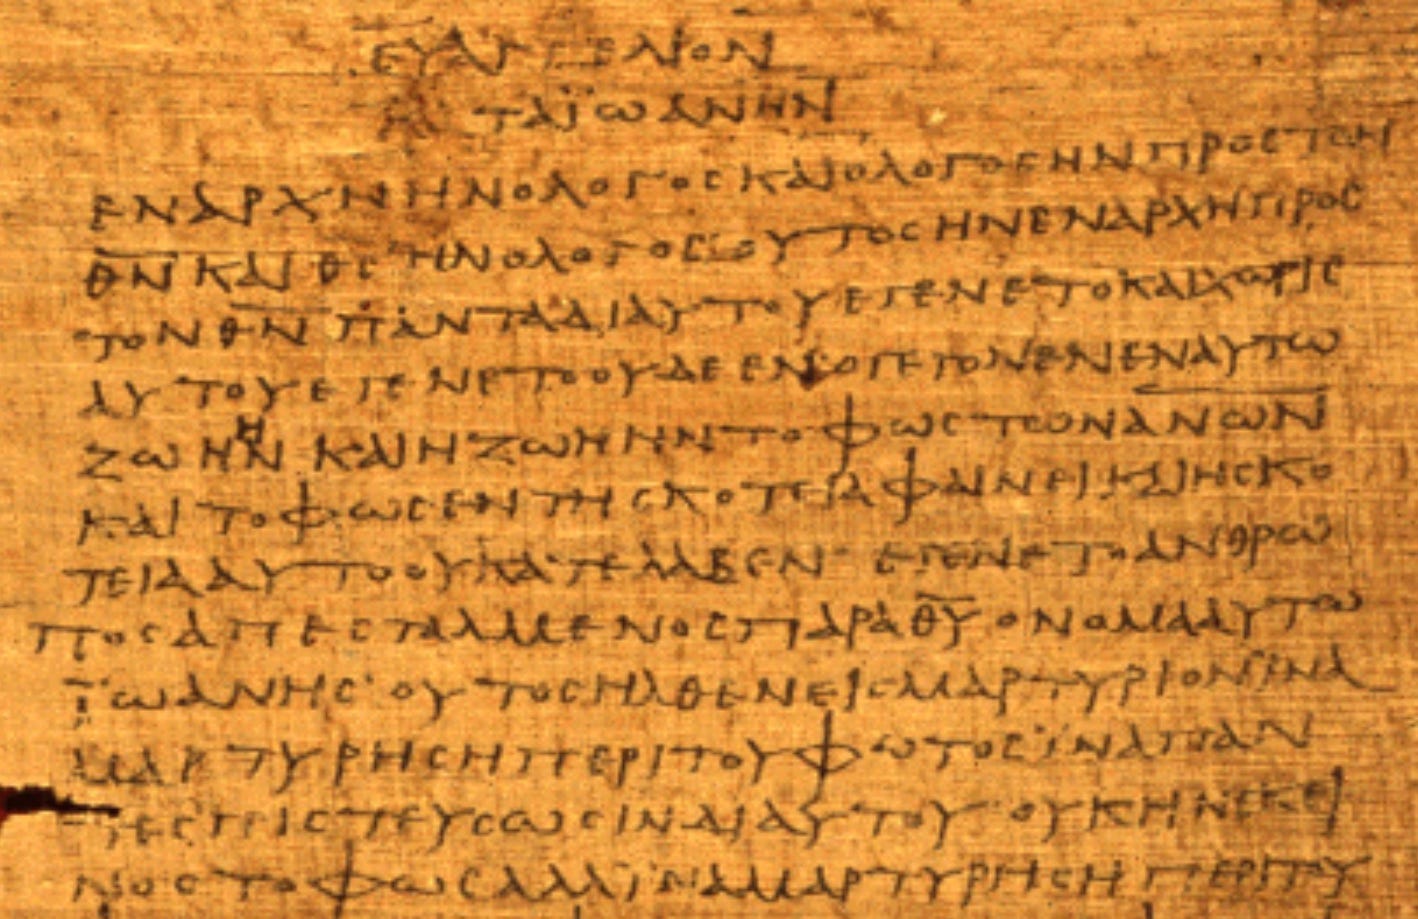 ΕΥΑΓΓΕΛΙΟΝ
ΚΑΤΑ ΪΩΑΝΗΝ
ΕΝ ΑΡΧΗ ΗΝ Ο ΛΟΓΟΣ ΚΑΙ Ο ΛΟΓΟΣ ΗΝ ΠΡΟΣ ΤΟΝ
Θ̅Ν̅ ΚΑΙ Θ̅Σ̅ ΗΝ Ο ΛΟΓΟΣ· ΟΥΤΟΣ ΗΝ ΕΝ ΑΡΧΗ ΠΡΟΣ
ΤΟΝ Θ̅Ν̅ ΠΑΝΤΑ ΔΙ ΑΥΤΟΥ ΕΓΕΝΕΤΟ ΚΑΙ ΧΩΡΙΣ
ΑΥΤΟΥ ΕΓΕΝΕΤΟ ΟΥΔΕ ΕΝ Ο ΓΕΓΟΝΕΝ ΕΝ ΑΥΤΩ
ΖΩΗ ΗΝ ΚΑΙ Η ΖΩΗ ΗΝ ΤΟ ΦΩΣ ΤΩΝ Α̅Ν̅Ω̅Ν̅
ΚΑΙ ΤΟ ΦΩΣ ΕΝ ΤΗ ΣΚΟΤΕΙΑ ΦΑΙΝΕΙ ΚΑΙ Η ΣΚΟ
ΤΕΙΑ ΑΥΤΟ ΟΥ ΚΑΤΕΛΑΒΕΝ· ΕΓΕΝΕΤΟ ΑΝΘΡΩ
ΠΟΣ ΑΠΕΣΤΑΛΜΕΝΟΣ ΠΑΡΑ Θ̅Υ̅ ΟΝΟΜΑ ΑΥΤΩ
ΪΩΑΝΗΣ· ΟΥΤΟΣ ΗΛΘΕΝ ΕΙΣ ΜΑΡΤΥΡΙΟΝ ΪΝΑ
ΜΑΡΤΥΡΗΣΗ ΠΕΡΙ ΤΟΥ ΦΩΤΟΣ ΪΝΑ ΠΑΝ
ΤΕΣ ΠΙΣΤΕΥΣΩΣΙΝ ΔΙ ΑΥΤΟΥ· ΟΥΚ ΗΝ ΕΚΕΙ
ΝΟΣ ΤΟ ΦΩΣ ΑΛΛ ΪΝΑ ΜΑΡΤΥΡΗΣΗ ΠΕΡΙ ΤΥ